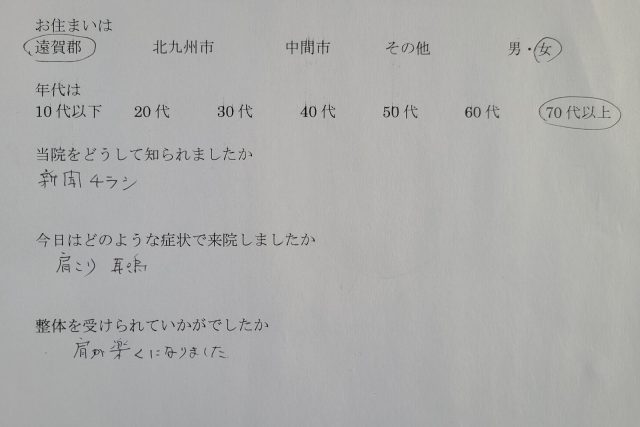 お住まいは
遠賀郡 北九州市 中間市 その他 男・女
年代は
10代以下 20代 30代 40代 50代 60代 70代以上
当院をどうして知られましたか
新聞チラシ
今日はどのような症状で来院しましたか
肩こり 耳鳴
整体を受けられていかがでしたか
肩が楽くになりました